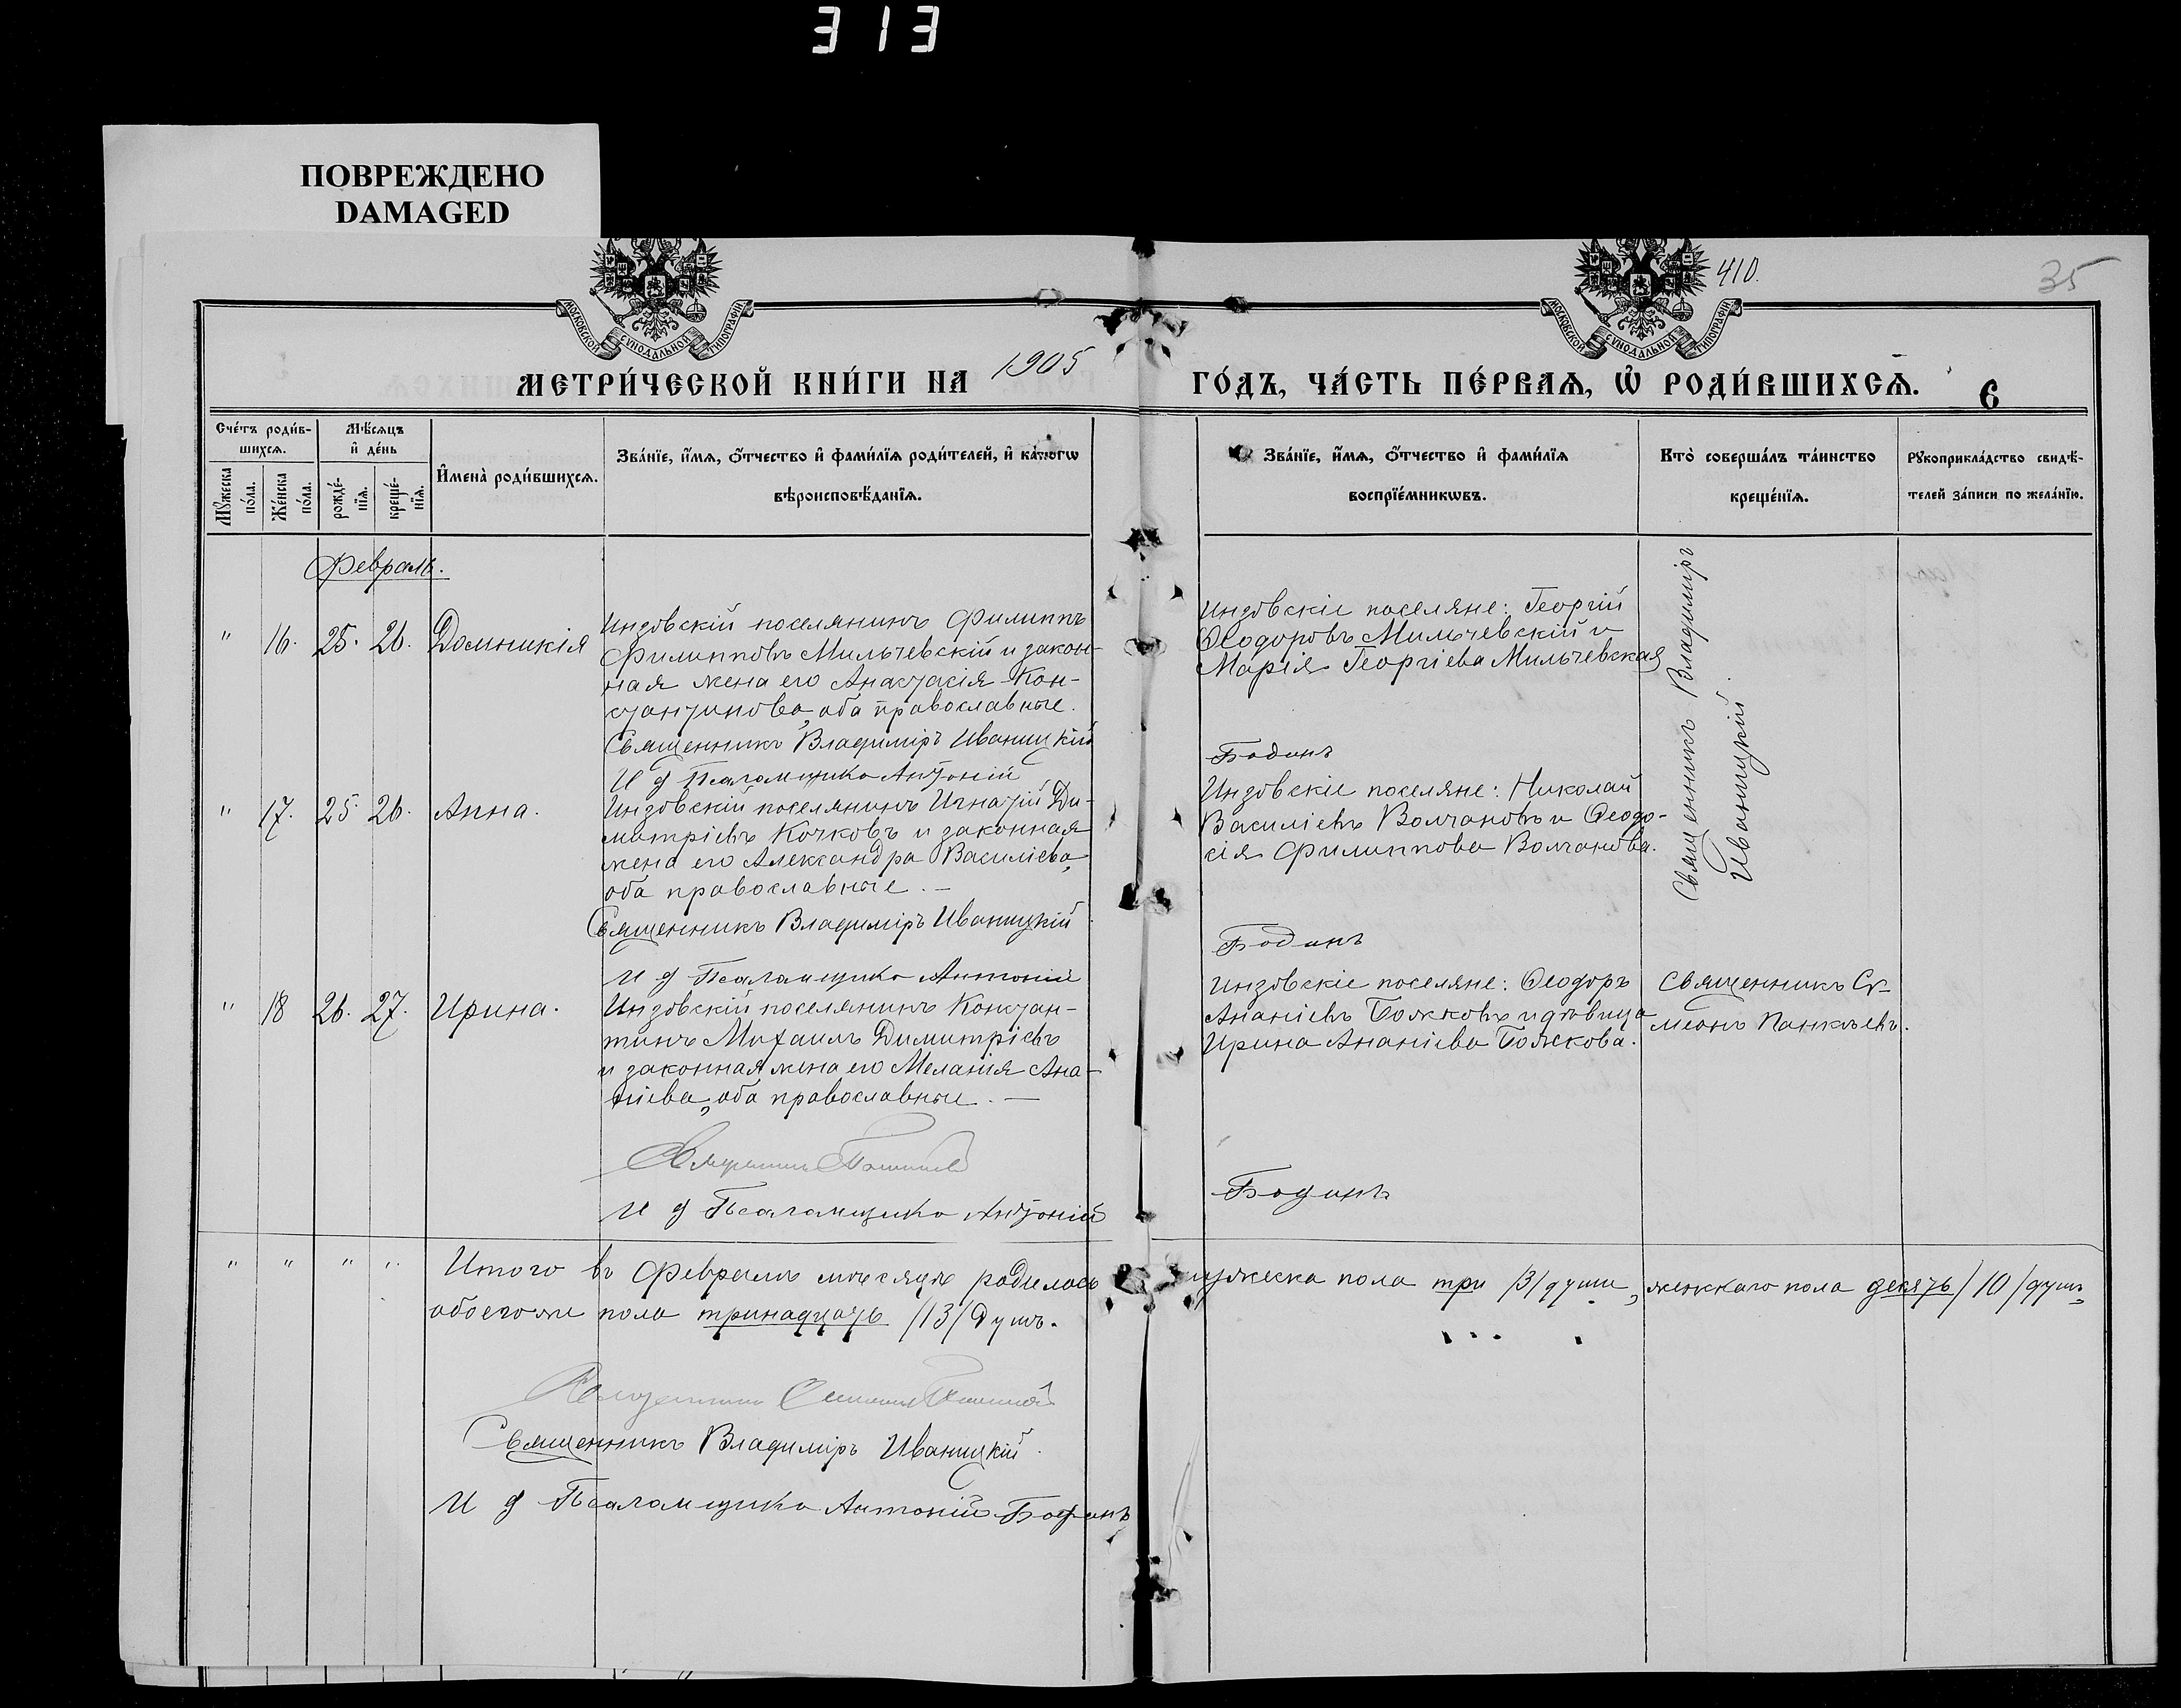 313
ПОВРЕЖДЕНО
DAMAGED
410.
35
МОСКОВСКОЙ СУНОДАЛЬНОЙ ТИПОГРАФІИ
МОСКОВСКОЙ СУНОДАЛЬНОЙ ТИПОГРАФІИ
МЕТРИ́ЧЕСКОЙ КНИ́ГИ НА 1905 ГО́ДЪ, ЧА́СТЬ ПЕ́РВАѦ, Ѡ҆ РОДИ́ВШИХСѦ. 6
Сче́тъ роди́в-
шихсѧ.
Мѣ́сѧцъ
и҆ де́нь
Мꙋ́жеска
по́ла.
Же́нска
по́ла.
рожде́-
нїѧ.
креще́-
нїѧ.
И҆мена̀ роди́вшихсѧ.
Зва́нїе, и҆́мѧ, ѻ҆́тчество и҆ фами́лїѧ роди́телей, и҆ ка́когѡ
вѣроисповѣ́данїѧ.
Зва́нїе, и҆́мѧ, ѻ҆́тчество и҆ фами́лїѧ
воспрїе́мникѡвъ.
Кто̀ соверша́лъ та́инство
креще́нїѧ.
Рꙋкоприкла́дство свидѣ́-
телей за́писи по жела́нїю.
Февраль.
" 16. 25. 26. Домникія
Индовскій поселянинъ Филиппъ
Филипповъ Мильчевскій и закон-
ная жена его Анастасія Кон-
стантинова, оба православные.
Священникъ Владиміръ Иваницкій
И д Псаломщика Антоній
Инзовскіе поселяне: Георгій
Ѳеодоровъ Мильчевскій и
Марія Георгіева Мильчевская
Боданъ
Священникъ Владиміръ
Иваницкій.
" 17. 25. 26. Анна.
Инзовскій поселянинъ Игнатій Ди-
митріевъ Кочковъ и законная
жена его Александра Василіева,
оба православные. —
Священникъ Владиміръ Иваницкій
И д Псаломщика Антоній
Инзовскіе поселяне: Николай
Василіевъ Волчановъ и Ѳеодо-
сія Филиппова Волчанова.
Боданъ
" 18 26. 27. Ирина.
Инзовскій поселянинъ Констан-
тинъ Михаилъ Димитріевъ
и законная жена его Меланія Ана-
ніева, оба православные. —
И д Псаломщика Антоній
Инзовскіе поселяне: Ѳеодоръ
Ананіевъ Божковъ и дѣвица
Ирина Ананіева Божкова.
Боданъ
Священникъ Сѵ-
меонъ Панкѣевъ.
" " " " Итого въ Февралѣ мѣсяцѣ родилось мужеска пола три /3/ души, женскаго пола десять /10/ душъ,
обоего же пола тринадцать /13/ душъ.
Священникъ Владиміръ Иваницкій.
И д Псаломщика Антоній Боданъ